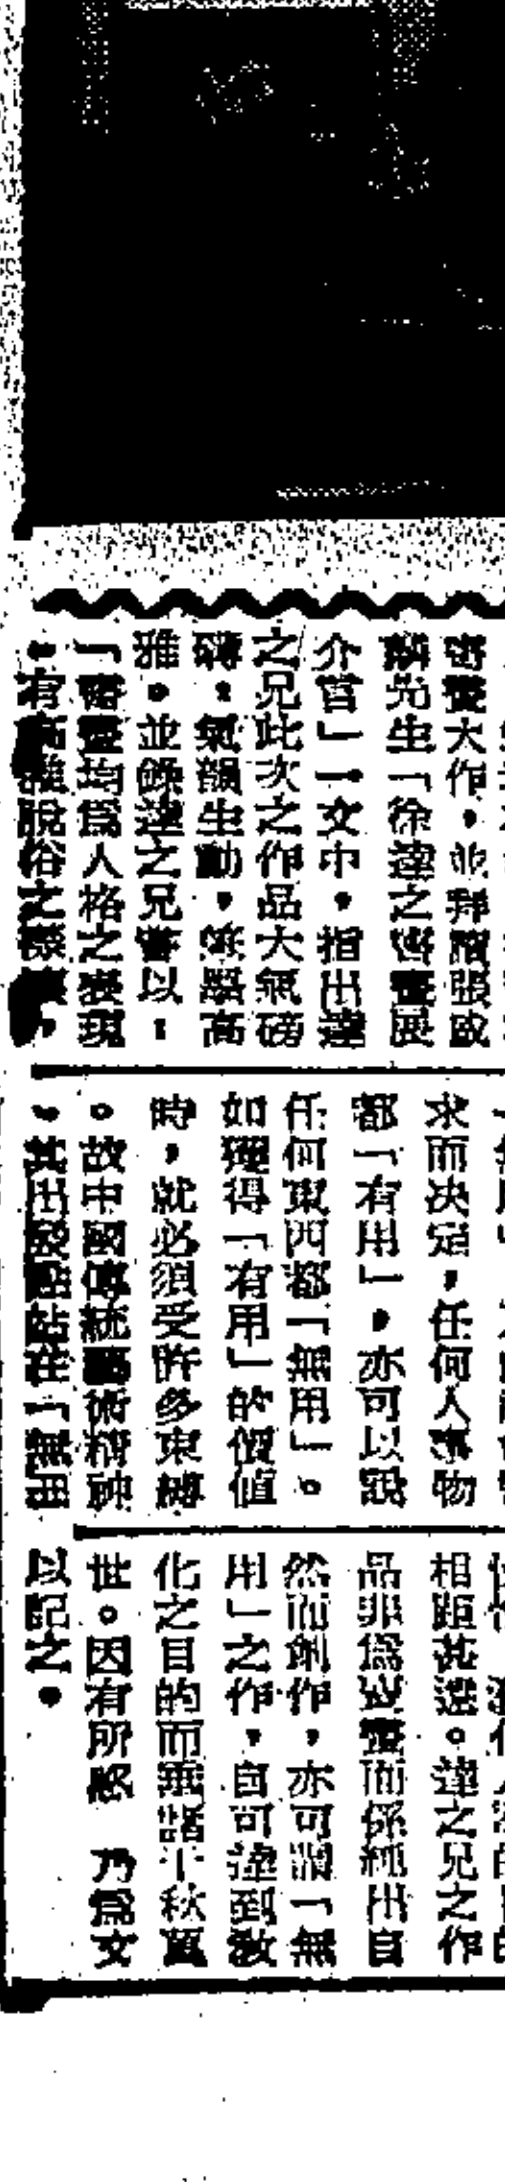 書畫大作，並拜讀張
麟先生「徐達之書畫展
介言」一文中，指出達
之兄此次之作品大氣磅
礴，氣韻生動，筆墨高
雅。並錄達之兄書以：
「書畫均爲人格之表現
，有高雅脫俗之
求而決定，任何人事物
都「有用」，亦可以說
任何東西都「無用」。
如獲得「有用」的價值
時，就必須受許多束縛
。故中國傳統藝術精神
，其出發點站在「無用
相距甚遠。達之兄之作
品非爲賣畫而係純出自
然而創作，亦可謂「無
用」之作，自可達到教
化之目的而垂諸千秋萬
世。因有所感 乃爲文
以記之。